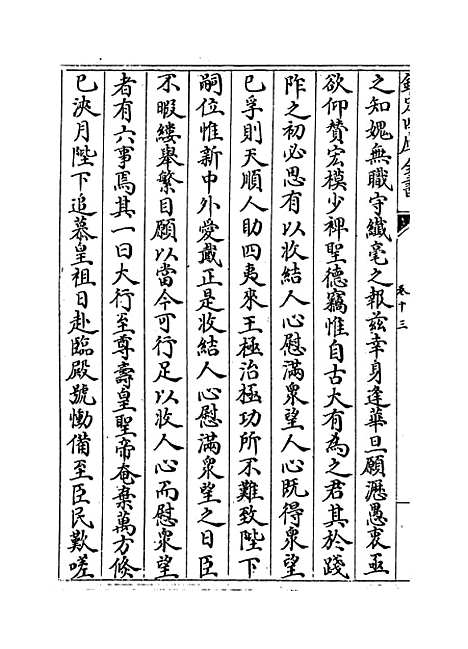 欽定四庫全書
卷十三
之知媿無職守纖毫之報兹幸身逢華旦願瀝愚衷亟
欲仰贊宏模少裨聖德竊惟自古大有為之君其於踐
阼之初必思有以收結人心慰滿衆望人心既得衆望
已孚則天順人助四夷來王極治極功所不難致陛下
嗣位惟新中外愛戴正是收結人心慰滿衆望之日臣
不暇縷舉繁目願以當今可行足以收人心而慰衆望
者有六事焉其一曰大行至尊壽皇聖帝奄棄萬方倐
已浹月陛下追慕皇祖日赴臨殿號慟備至臣民歎嗟